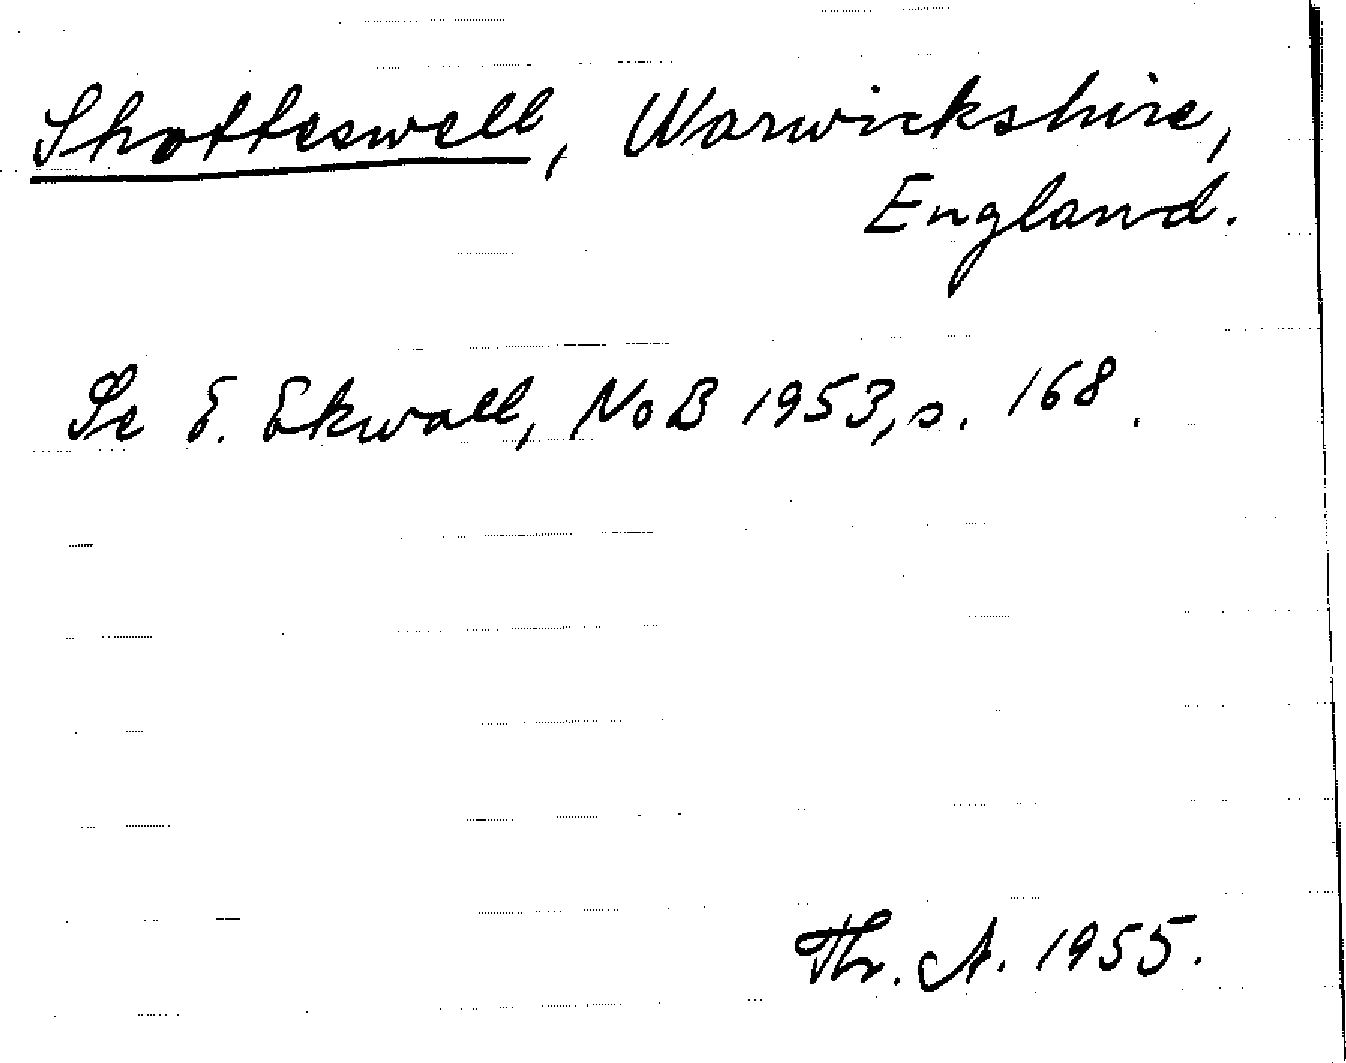 Shotteswell, Warwickshire,
England.
Se E. Ekwall, NoB 1953, s. 168.
Th. A. 1955.